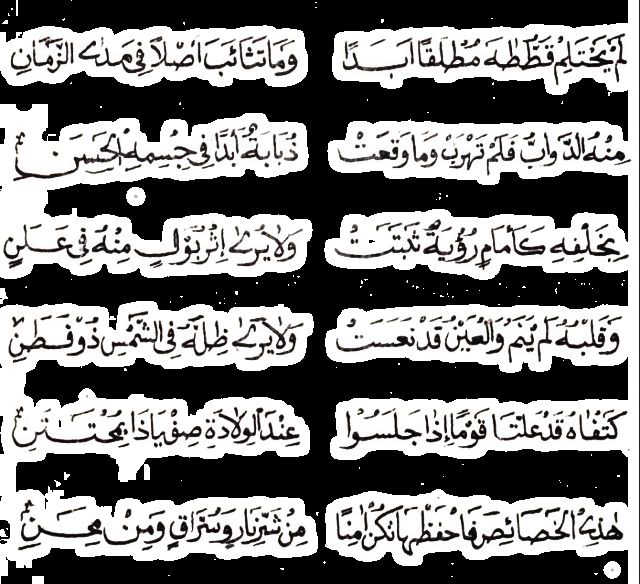 لَمْ يَحْتَلِمْ قَطُّ طٰهَ مُطْلَقًا اَبَدًا وَمَا تَثَائَبَ اَصْلًا فِى مَدٰى الزَّمَانِ
مِنْهُ الدَّوَابُّ فَلَمْ تَهْرَبْ وَمَا وَقَعَتْ ذُبَابَةٌ أَبَدًا فِى جِسْمِهِ الْحَسَنِ
بِخَلْفِهِ كَأَمَامٍ رُؤْيَةٌ ثَبَتَتْ وَلَا يُرٰى اِثْرُ بَوْلٍ مِنْهُ فِى عَلَنٍ
وَقَلْبُهُ لَمْ يَنَمْ وَالْعَيْنُ قَدْ نَعَسَتْ وَلَا يَرٰى ظِلَّهُ فِى الشَّمْسِ ذُوْ فَطَنٍ
كَتْفَاهُ قَدْ عَلَتَا قَوْمًا اِذَا جَلَسُوْا عِنْدَ الْوِلَادَةِ صِفْ يَاذَا بِمُخْتَتَنِ
هٰذِهِ الْخَصَائِصَ فَاحْفَظْهَا تَكُنْ اٰمِنًا مِنْ شَرِّ نَارٍ وَسُرَّاقٍ وَمِنْ مِحَنِ